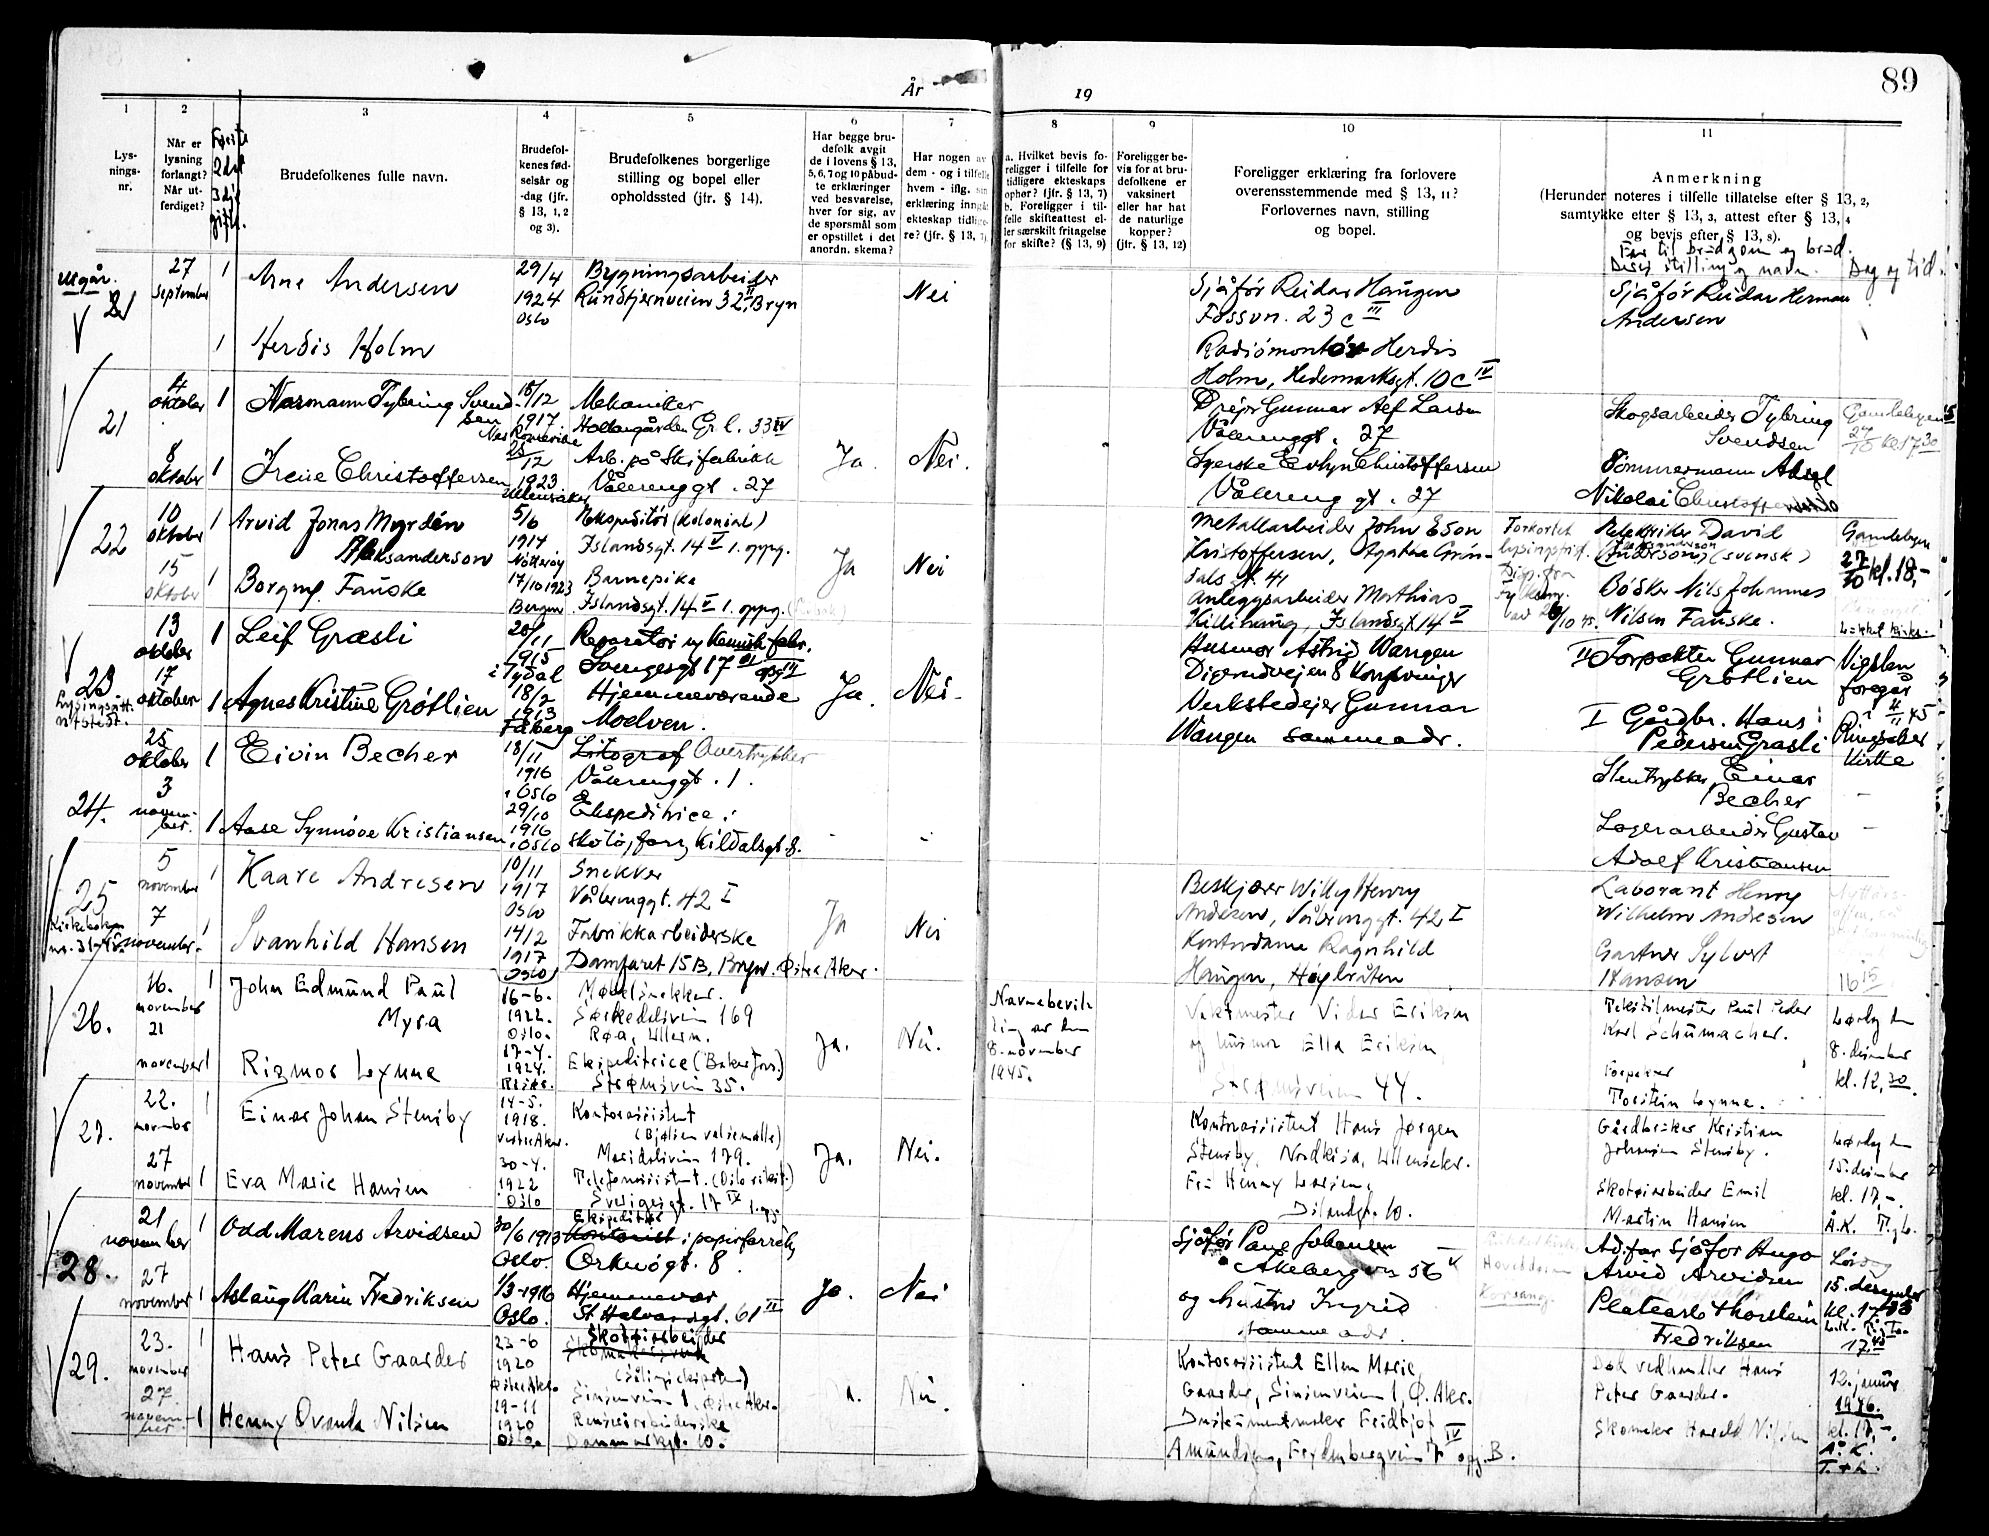 År
19
89
1
2
3
4
5
6
7
8
9
10
11
Lys-
nings-
nr.
Når er
lysning
forlangt?
Når ut-
ferdiget?
Første
2det
3dje
gifte.
Brudefolkenes fulle navn.
Brudefol-
kenes fød-
selsår og
-dag (jfr.
§ 13, 1, 2
og 3).
Brudefolkenes borgerlige
stilling og bopel eller
opholdssted (jfr. § 14).
Har begge bru-
defolk avgit
de i lovens § 13,
5, 6, 7 og 10 påbud-
te erklæringer
ved besvarelse,
hver for sig, av
de spørsmål som
er opstillet i det
anordn. skema?
Har nogen av
dem - og i tilfelle
hvem - iflg. sin
erklæring inngå
ekteskap tidlige-
re? (jfr. § 13, 7)
a. Hvilket bevis fo-
religger i tilfelle for
tidligere ekteskaps
ophør? (jfr. § 13, 7)
b. Foreligger i til-
felle skifteattest el-
ler særskilt fritagelse
for skifte? (§ 13, 9)
Foreligger be-
vis for at bru-
defolkene er
vaksinert
eller har hat
de naturlige
kopper?
(jfr. § 13, 12)
Foreligger erklæring fra forlovere
overensstemmende med § 13, 11?
Forlovernes navn, stilling
og bopel.
Anmerkning
(Herunder noteres i tilfelle tillatelse efter § 13, 2,
samtykke efter § 13, 3, attest efter § 13, 4
og bevis efter § 13, 8).
Far til brudgom og brud.
Deres stilling og navn.
Dag og tid.
Utgår.
27
september
1
Arne Andersen
29/4
1924
Oslo
Bygningsarbeider
Rundtjernveien 32 II, Bryn
Nei
Sjåfør Reidar Haugen
Fossvn. 23 c III
Sjåfør Reidar Herman
Andersen
1
Herdis Holm
Radiomontør Herdis
Holm, Hedemarksgt. 10 c IV
21
4
oktober
1
Normann Tybring Svend-
sen
18/12
1917
Nes Romerike
Mekaniker
Hollergården Gr.l. 33 IV
Dreier Gunnar Alf Larsen
Vålerenggt. 27
Skogsarbeider Tybring
Svendsen
Gamlebyen
kl. 17 30
8
oktober
1
Irene Christoffersen
25/12
1923
Ullensaker
Arb. på Skifabrikk
Vålerenggt. 27
Ja.
Nei.
Syerske Evelyn Christoffersen
Vålereng gt. 27
Tømmermann Aksel
Nikolai Christoffersen
22
10
oktober
1
Arvid Jonas Myrdén
Aleksanderson
5/6
1917
Nötteröy
Ekspeditør (kolonial)
Islandsgt. 14 V 1. oppg.
Ja
Nei
Metallarbeider John Eson
Kristoffersen, Agathe Grøn-
dals gt. 41
Forkortet
lysingstid.
Disp. fra
Fylkesm.
Elektriker David
Anderson, (svensk)
Gamlebyen
27/10 kl. 18,-
15
oktober
1
Borgny Fauske
17/10 1923
Bergen
Barnepike
Islandsgt. 14 V 1. oppg.
Anleggsarbeider Mathias
Killihaug, Islandsgt. 14 V
Bødker Nils Johannes
Nilsen Fauske.
23
13
oktober
1
Leif Græsli
20/11
1915
i Tydal
Reparatør
Sverigesgt 17
Husmor Astrid Wangen
Digerudveien 8 Kongsvinger
II Forpakter Gunnar
Grøtlien
Vigslen
foregår
17
oktober
1
Agnes Kristine Grøtlien
18/2
1913
Fåberg
Hjemmeværende
Moelven.
Ja.
Nei.
Verkstedeier Gunnar
Wangen samme adr.
I Gårdbr. Hans
Pedersen Græsli
Ringsaker
kirke
24.
25
oktober
1
Eivin Becher
18/11
1916
i Oslo
Litograf Overtrykker
Vålerenggt. 1.
Stentrykker Einar
Becher
3
novem-
ber.
1
Aase Synnøve Kristiansen
29/10
1916
i Oslo
Ekspeditrice i
skotøiforr, Kildalsgt. 8.
Lagerarbeider Gustav
Adolf Kristiansen
25
5
november
1
Kaare Andresen
10/11
1917
Oslo
Snekker
Vålerenggt. 42 I
Beskjærer Willy Henry
Andresen, Vålerenggt. 42 I
Laborant Henry
Wilhelm Andresen
Kirkeboken
7
november.
1
Svanhild Hansen
14/2
1917
Oslo
Fabrikkarbeiderske
Damfaret 15 B, Bryn. Østre Aker.
Ja
Nei
Kontordame Ragnhild
Haugen, Høybråten
Gartner Sylvert
Hansen
16 15
26.
16.
november
1
John Edmund Paul
Myra
16-6.
1922.
Oslo.
Møbelsnekker.
Sørkedalsveien 169
Røa, Ullern.
Ja.
Nei.
Navnebevil-
ling av den
8. november
1945.
Vaktmester Vidar Eriksen
og husmor Ella Eriksen
Strømsveien 44.
Tekstilmester Paul Peder
Karl Schumacher.
Lørdag den
8. desember
kl. 12,30.
21
november
1
Rigmor Lynne
17-4.
1924.
Ekspeditrice (Bakerforr.)
Strømsveien 35.
Forpakter
Torstein Lynne.
27.
22.
november
1
Einar Johan Stensby
14-5.
1918.
Vestre Aker.
Kontorassistent
(Bjølsen valsemølle)
Maridalsveien 179.
Ja.
Nei.
Kontorassistent Hans Jørgen
Stensby, Nordkisa, Ullensaker.
Gårdbruker Kristian
Johansen Stensby.
Lørdag den
15. desember
kl. 17,-.
27
november
1
Eva Marie Hansen
30-4.
1922
Oslo
Telefonassistent. (Oslo rikst.)
Sverigesgt. 17 IV
Fru Henny Larsen,
Islandgt. 10.
Skotøiarbeider Emil
Martin Hansen
Å.K.
28.
21
november
1
Odd Marens Arvidsen
30/6 1913
Oslo.
Ekspeditør
Kontorist i papirforretn.
Orknøgt. 8.
Sjåfør Paul Johansen
Åkebergvn 56 V
Ad.far sjåfør Hugo
Arvid Arvidsen
Lørdag
15. desember
27
november
1
Aslaug Karin Fredriksen
1/3-1916
Oslo.
Hjemmevær
St. Halvardsgt. 61 III
Ja.
Nei
og hustru Ingrid
samme adr.
Platearb. Thorstein
Fredriksen
29.
23.
november
1
Hans Peter Gaarder
23-6
1920
Østre Aker.
Skotøiarbeider
Sinsenveien 1, Østre Aker.
Ja.
Nei.
Kontorassistent Ellen Marie
Gaarder, Sinsenveien 1, Ø. Aker.
Død vedhandler Hans
Peter Gaarder.
12. januar
1946.
kl. 17,-.
Å. K.
27.
novem-
ber.
1
Henny Ovanda Nilsen
19-11
1920
Oslo.
Danmarksgt. 10.
Instrumentmaker Fridtjof
Amundsen, Frydenbergveien
Skomaker Harald Nilsen